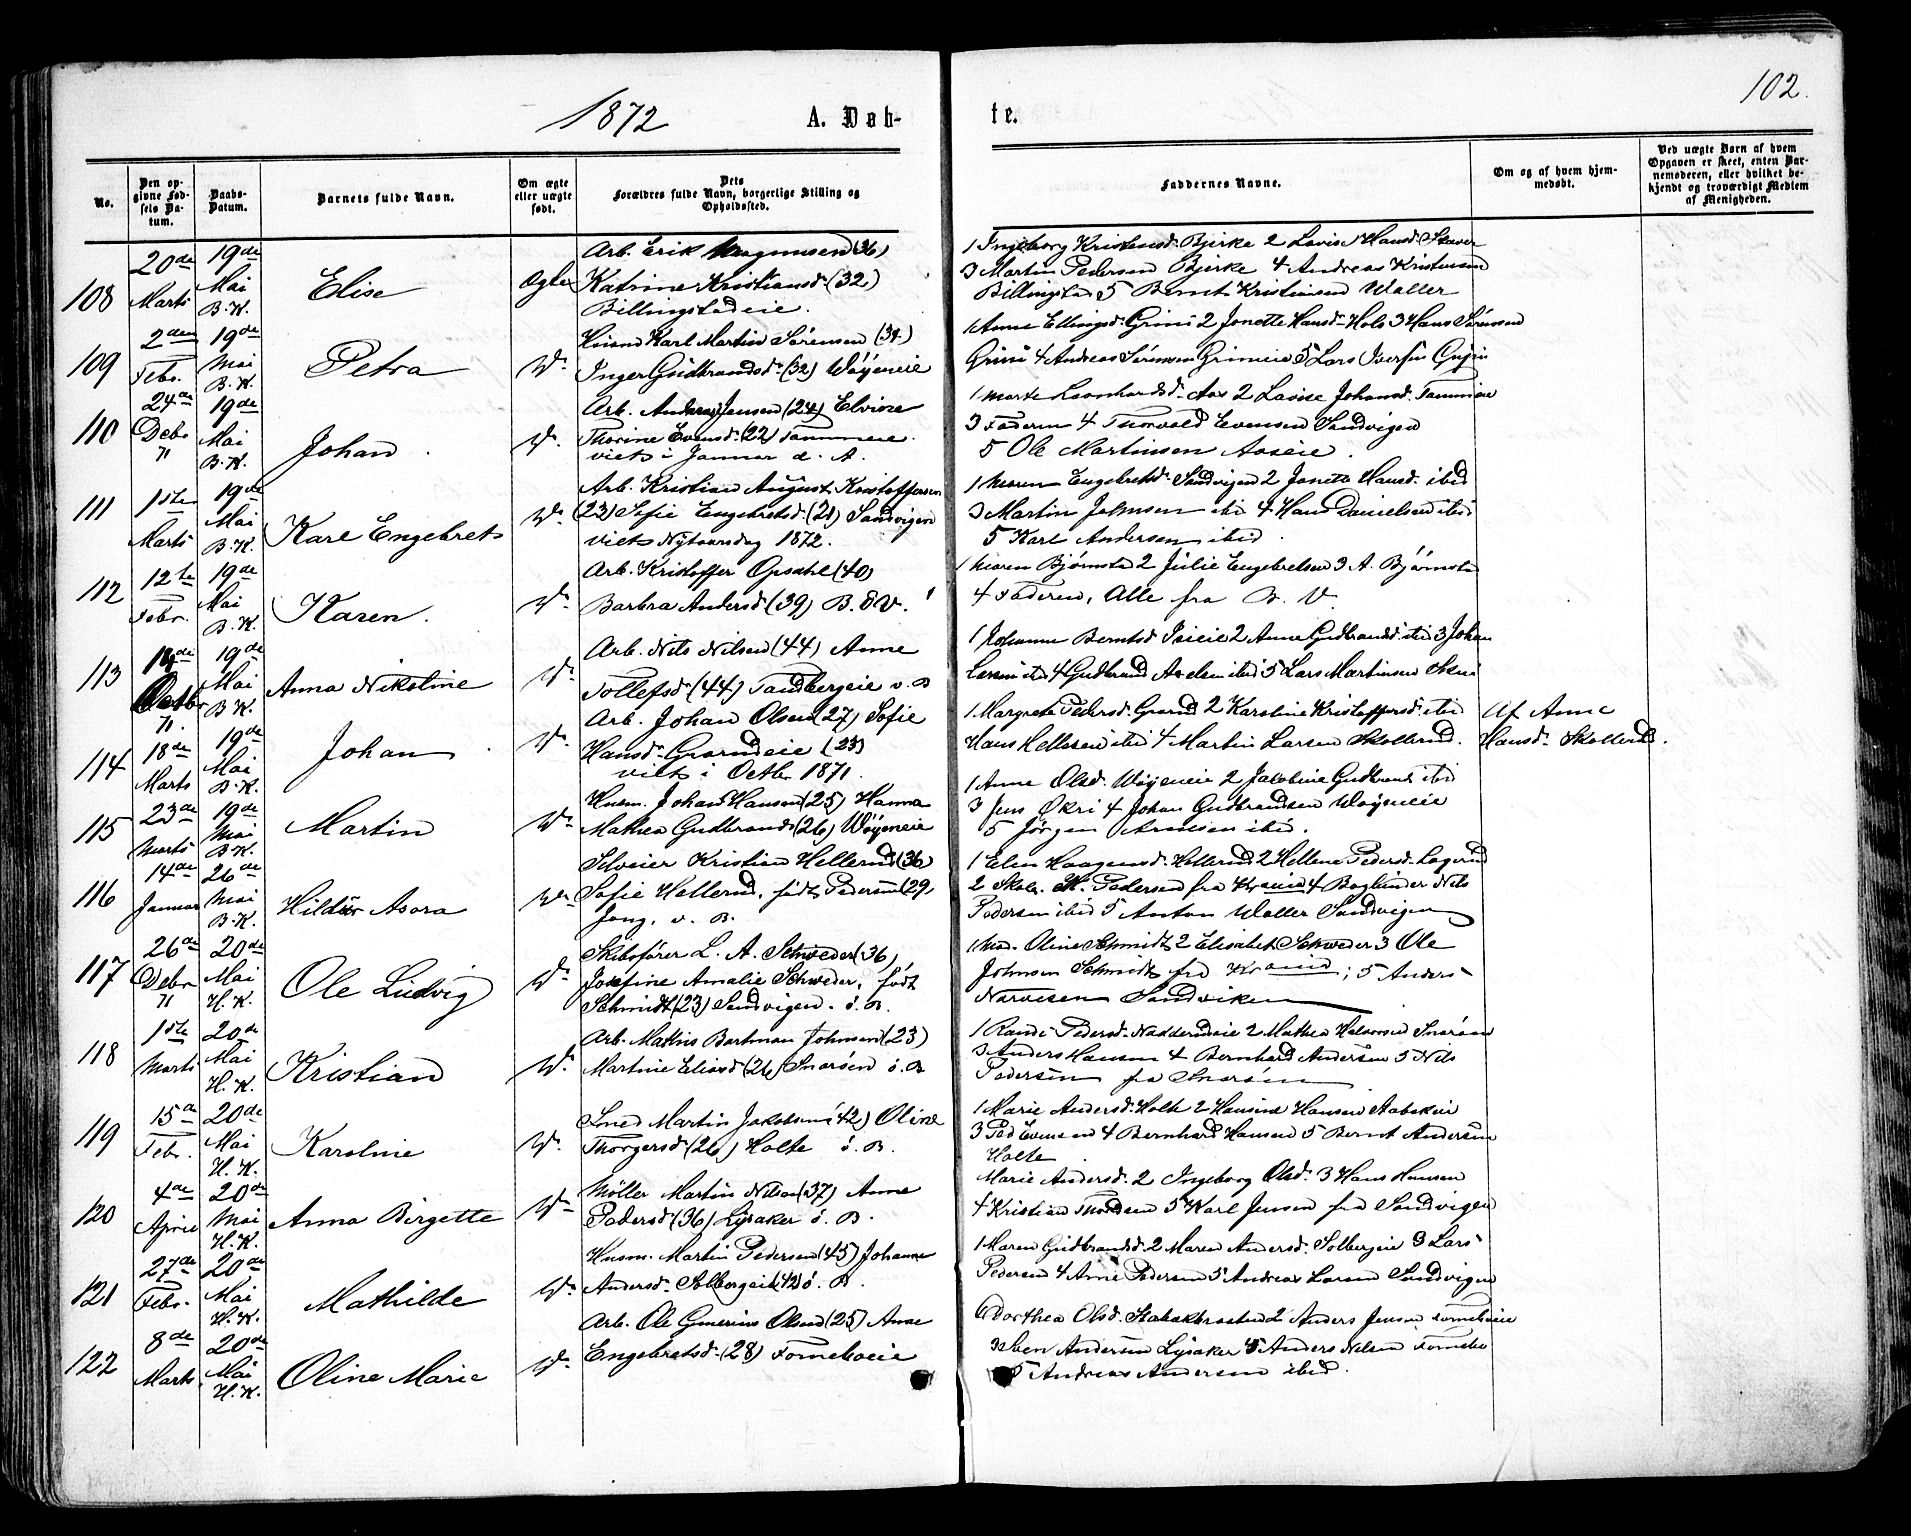 102.
1872 A. Døb- te.
No. Den opgivne Fødsels Datum. Daabs-Datum. Barnets fulde Navn. Om ægte eller uægte født. Dets Forældres fulde Navn, borgerlige Stilling og Opholdssted. Faddernes Navne. Om og af hvem hjemmedøbt. Ved uægte Børn af hvem Opgaven er skeet, enten Barnemoderen, eller hvilket bekjendt og troværdigt Medlem af Menigheden.
108 20de Marts 19de Mai B. K. Elise Ægte
Arb. Erik Magnussen (36)
Katrine Kristiansd. (32)
Billingstadeie.
1 Ingeborg Kristensd. Bjerke 2 Lovise Hansd. Staver
3 Martin Pedersen Bjerke 4 Andreas Kristensen
Billingstad 5 Bernt Kristiansen Waller
109 2den Febr. 19de Mai B. K. Petra Do.
Husm Karl Martin Sørensen (34)
Inger Gudbrandsd. (32) Wøyeneie
1 Anne Ellingsd. Grini 2 Jonette Hansd. Hols 3 Hans Sørensen
Grini 4 Andreas Sørensen Grinieie 5 Lars
110 24de Debr 71 19de Mai B. K. Johan. Do.
Arb. Anders Jensen (24) Elvine
Thorine Evensd. (22) Tammeie.
viet i Januar d. A.
1 Marte Leonhardsd. Aas 2 Lovise Johansd. Tammeie
3 Faderen 4 Thorvald Evensen Sandvigen
5 Ole Martinsen Aaseie.
111 1ste Marts 19de Mai B. K. Karl Engebret Do.
Arb. Kristian August Kristoffersen
(23) Sofie Engebretsd. (21) Sandvigen
viet Nytaarsdag 1872.
1 Maren Engebretsd. Sandvigen 2 Jonette Hansd. ibid
3 Martin Johnsen ibid 4 Hans Danielsen ibid
5 Karl Andersen ibid.
112 12te Febr. 19de Mai B. K. Karen. Do.
Arb. Kristoffer Opsahl (40)
Barbra Andersd. (39) B. V.
1 Maren Bjørnstad 2 Julie Engebretsen 3 A. Bjørnstad
4 Faderen, Alle fra B. V.
113 Octbr 71. 19de Mai B K. Anna Nikoline Do.
Arb. Nils Nilsen (44) Anne
Tollefsd (44) Tandbergeie v. B
1 Johanne Berntsd 2 Anne Gudbrandsd ibid 3 Johan
Larsen ibid 4 Gudbrand Axelsen ibid 5 Lars Martinsen
114 18de Marts 19de Mai B. K. Johan. Do.
Arb. Johan Olsen (27) Sofie
Hansd. Grandeie (23)
viet i Octbr 1871.
1 Margrete Pedersd. Grand 2 Karoline Kristoffersd. ibid
Hans Hellesen ibid 4 Martin Larsen Skollerud.
Af Anne
Hansd. Skollerud.
115 23de Marts 19de Mai B K. Martin Do.
Husm. Johan Hansen (25) Hanna
Mathea Gudbrandsd (26) Wøyeneie
1 Anne Olsd. Wøyeneie 2 Jakobine Gudbrandsd ibid
3 Jens Økri 4 Johan Gudbrandsen Wøyeneie
5 Jørgen Arnesen ibid.
116 14de Januar 26de Mai B. K. Hildur Asora Do.
Selveier Kristian Hellerud (36)
Sofie Hellerud, født Pedersen (29)
Jong, v. B.
1 Elen Haagensd. Hellerud 2 Hellene Pedersd. Lagerud
2 Skolr. M. Pedersen fra Krania 4 Boghinder Nils
Pedersen ibid 5 Anton Waller Sandvigen
117 26de Debr 71 20de Mai H. K. Ole Ludvig Do.
Skibsfører L. A. Schweder (36)
Josefine Amalie Schweder, født
Schmidt (23) Sandvigen. ø. B.
1 Mad. Oline Schmidt 2 Elisabet Schweder 3 Ole
Johnsen Schmidt fra Krania; 5 Anders
Narvesen Sandviken
118 1ste Marts 20de Mai H. K. Kristian Do.
Arb. Mathis Bartman Johnsen (23)
Martine Eliasd (26) Snarøen ø. B
1 Randi Pedersd. Nadderudeie 2 Mathea Halvorsd Snarøen
3 Anders Hansen 4 Bernhard Andersen 5 Nils
Pedersen fra Snarøen
119 15de Febr. 20de Mai H. K. Karoline Do.
Smed Martin Jakobsen (42) Oline
Thorgersd (26) Holte ø. B.
1 Marie Andersd. Holte 2 Hansine Hansen Stabekeie
3 Ped Evensen 4 Bernhard Hansen 5 Bernt Andersen
Holte
120 4de April 20de Mai H. K. Anna Birgette Do.
Møller Martin Nilsen (37) Anne
Pedersd (36) Lysaker ø. B.
Marie Andersd. 2 Ingeborg Olsd. 3 Hans Hansen
4 Kristian Thordsen 5 Karl Jensen fra Sandvigen
121 27de Febr. 20de Mai H. K. Mathilde Do.
Husm. Martin Pedersen (45) Johanne
Andersd. Solbergeie (42) ø. B.
1 Maren Gudbrandsd. 2 Maren Andersd. Solbergeie 3 Lars
Pedersen 4 Arne Pedersen 5 Andreas Larsen Sandvigen
122 8de Marts 20de Mai H. K. Oline Marie Do.
Arb. Ole Gmerius Olsen (25) Anne
Engebretsd. (28) Forneboeie
Dorthea Olsd. Stabækbraaten 2 Anders Jensen Forneboeie
3 Iben Andersen Lysaker 4 Anders Nilsen Fornebo
5 Andreas Andersen ibid.